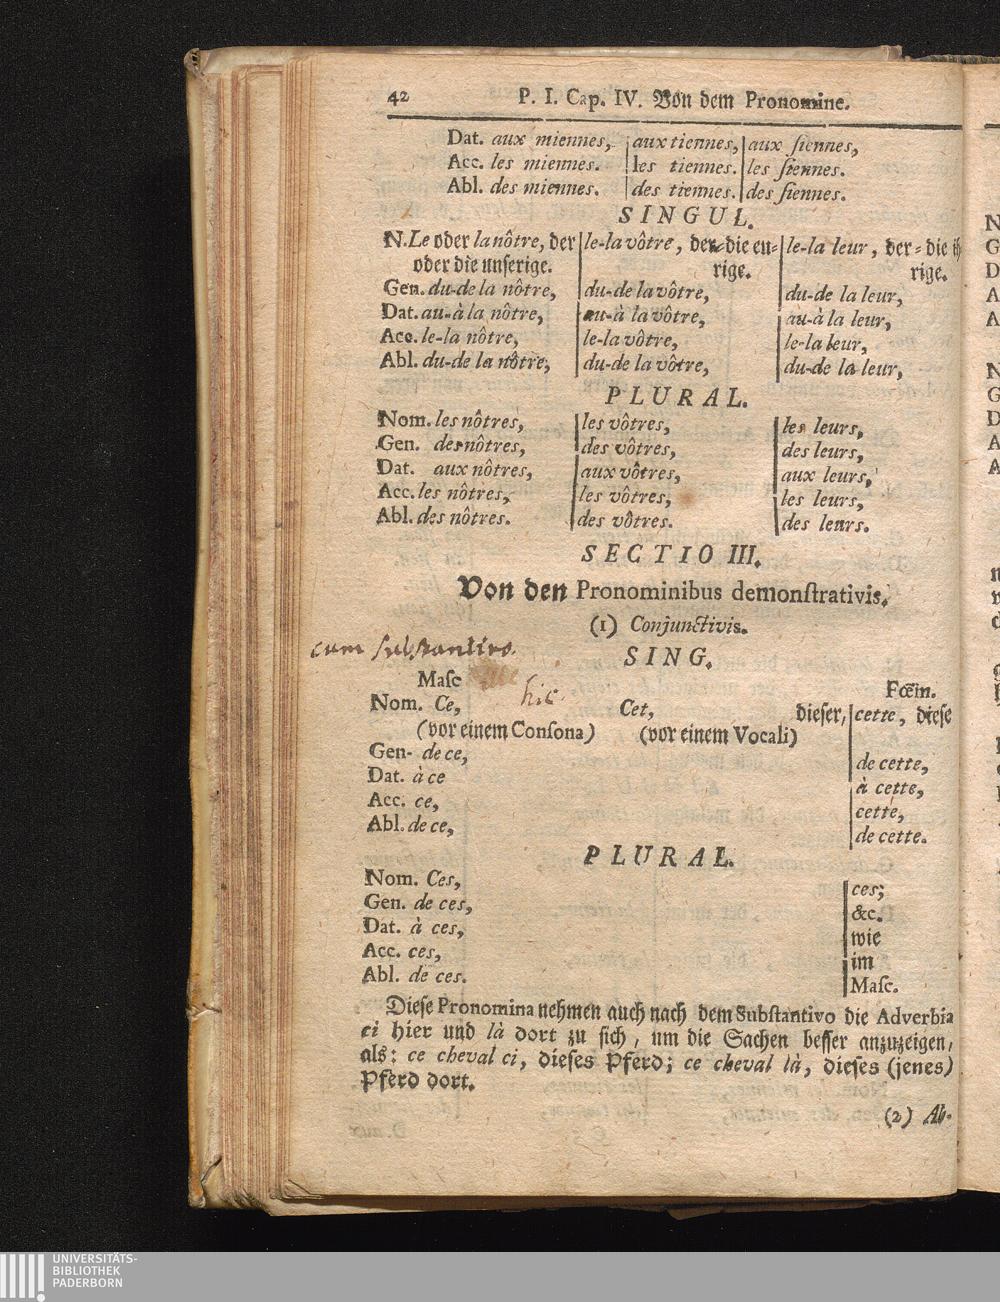 42 P. I. Cap. IV. Von dem Pronomine.
Dat. aux miennes, | aux tiennes, | aux ſiennes,
Acc. les miennes. | les tiennes. | les ſiennes.
Abl. des miennes. | des tiennes. | des ſiennes.
SINGUL.
N. Le oder la nôtre, der | le-la vôtre, der-die eu- | le-la leur, der-die ih
oder die unſerige. | rige. | rige.
Gen. du-de la nôtre, | du-de la vôtre, | du-de la leur,
Dat. au-à la nôtre, | au-à la vôtre, | au-à la leur,
Acc. le-la nôtre, | le-la vôtre, | le-la leur,
Abl. du-de la nôtre, | du-de la vôtre, | du-de la leur,
PLURAL.
Nom. les nôtres, | les vôtres, | les leurs,
Gen. des nôtres, | des vôtres, | des leurs,
Dat. aux nôtres, | aux vôtres, | aux leurs,
Acc. les nôtres, | les vôtres, | les leurs,
Abl. des nôtres. | des vôtres. | des leurs.
SECTIO III.
Von den Pronominibus demonſtrativis.
(1) Conjunctivis.
cum ſubſtantivo
SING.
Maſc Fœm.
hic
Nom. Ce, Cet, dieſer, | cette, dieſe
(vor einem Conſona) (vor einem Vocali)
Gen- de ce, | de cette,
Dat. à ce | à cette,
Acc. ce, | cette,
Abl. de ce, | de cette.
PLURAL.
Nom. Ces, | ces;
Gen. de ces, | &c.
Dat. à ces, | wie
Acc. ces, | im
Abl. de ces. | Maſc.
Dieſe Pronomina nehmen auch nach dem Subſtantivo die Adverbia
ci hier und là dort zu ſich, um die Sachen beſſer anzuzeigen,
als: ce cheval ci, dieſes Pferd; ce cheval là, dieſes (jenes)
Pferd dort.
(2) Ab-
UNIVERSITÄTS-
BIBLIOTHEK
PADERBORN